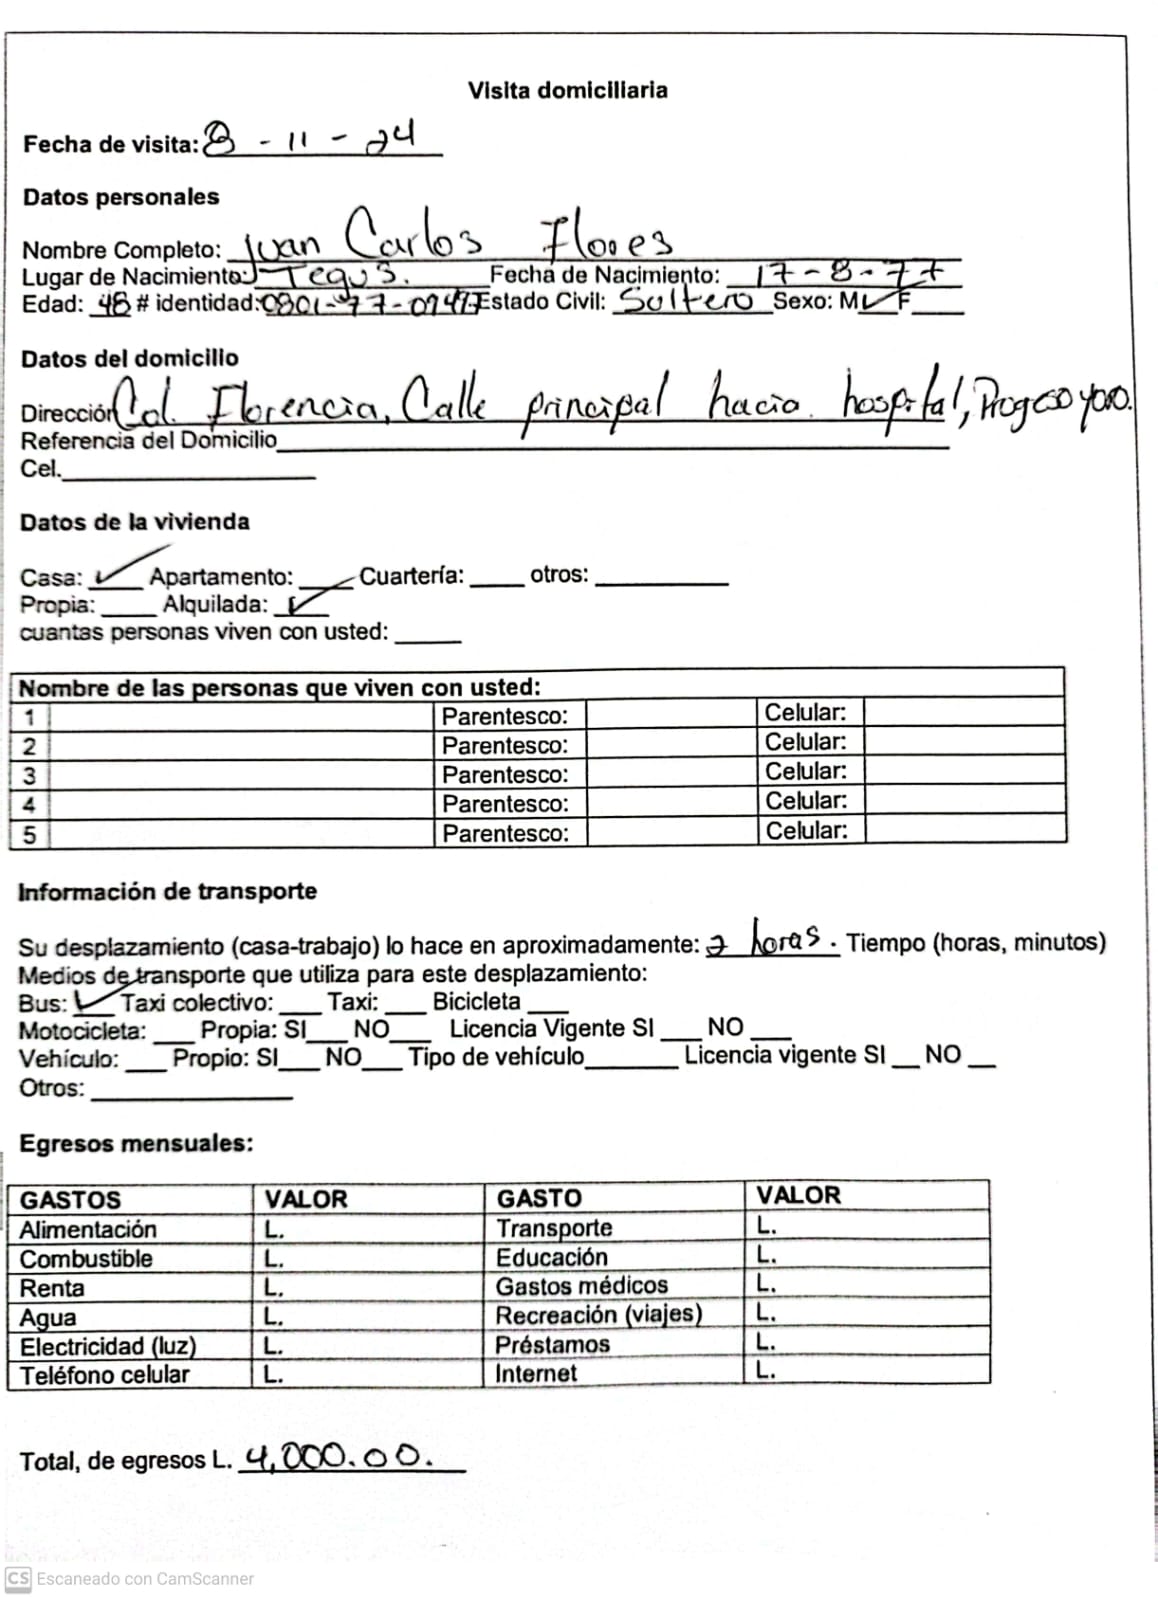 Visita domiciliaria
Fecha de visita: 8 - 11 - 24
Datos personales
Nombre Completo: Juan Carlos Flores
Lugar de Nacimiento: Tegus. Fecha de Nacimiento: 17-8-77
Edad: 48 # identidad: 0801-77-09477 Estado Civil: Soltero Sexo: M ✓ F____
Datos del domicilio
Dirección Col. Florencia, Calle principal hacia hospital, Progreso yoro.
Referencia del Domicilio____
Cel.____
Datos de la vivienda
Casa: ✓ Apartamento: ____ Cuartería: ____ otros: ____
Propia: ____ Alquilada: ✓
cuantas personas viven con usted: ____
Nombre de las personas que viven con usted:
1 Parentesco: Celular:
2 Parentesco: Celular:
3 Parentesco: Celular:
4 Parentesco: Celular:
5 Parentesco: Celular:
Información de transporte
Su desplazamiento (casa-trabajo) lo hace en aproximadamente: 2 horas. Tiempo (horas, minutos)
Medios de transporte que utiliza para este desplazamiento:
Bus: ✓ Taxi colectivo: ____ Taxi: ____ Bicicleta ____
Motocicleta: ____ Propia: SI____ NO____ Licencia Vigente SI ____ NO ____
Vehículo: ____ Propio: SI____ NO____ Tipo de vehículo____ Licencia vigente SI __ NO __
Otros: ____
Egresos mensuales:
GASTOS VALOR GASTO VALOR
Alimentación L. Transporte L.
Combustible L. Educación L.
Renta L. Gastos médicos L.
Agua L. Recreación (viajes) L.
Electricidad (luz) L. Préstamos L.
Teléfono celular L. Internet L.
Total, de egresos L. 4,000.00.
CS Escaneado con CamScanner